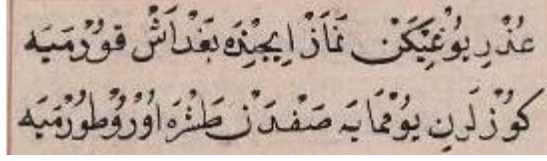 عُذْرِ يُوغِيكَنْ نَمَازْ اِيچِنْدَه بَغْدَاشْ قُورْمَيَه
كُوزْلَرِنِ يُومْمَايَه صَفْدَنْ طَشْرَه اُورُو طُورْمَيَه